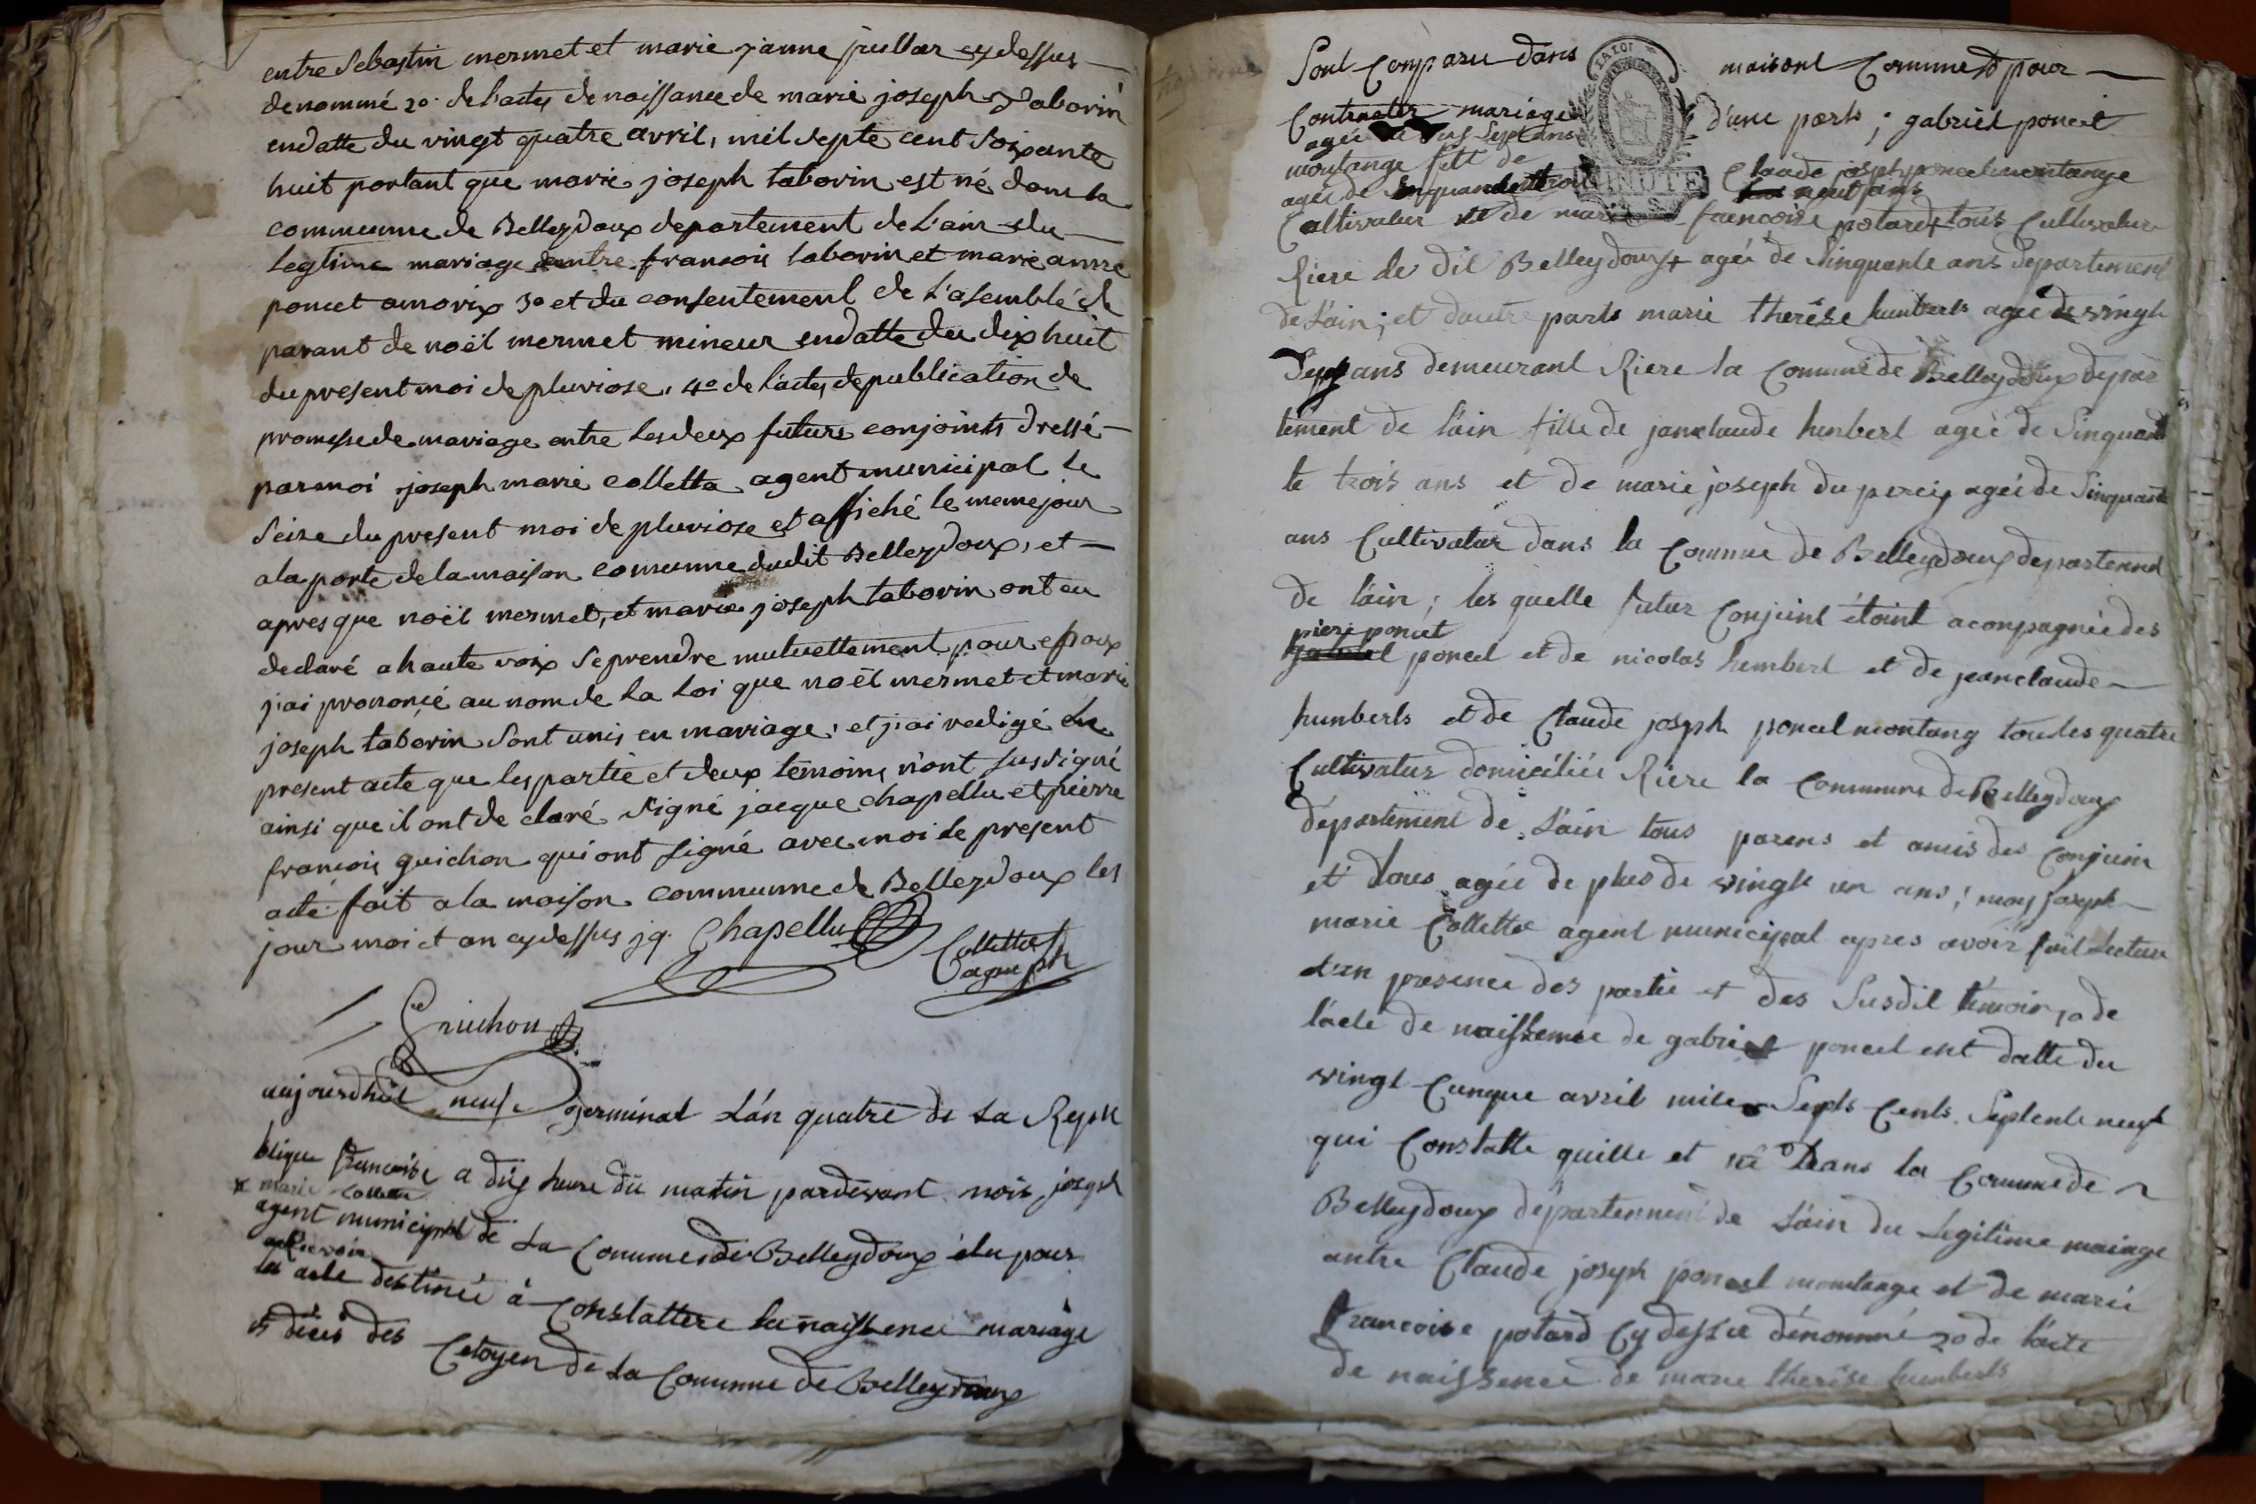 entre Sebastin mermet et marie janne jullar cy dessus
denommé 2o. de lactes de naissance de marie joseph Taborin
endatte du vingt quatre avril, mil septe cent Soixante
huit portant que marie joseph taborin est né dans la
communne de Belleydoux departement de L'ain du
Legtime mariage dentre francois taborin et marie anne
poncet amorix 3o et du consentement de L'asemblé de
parant de noël mermet mineur endatte du dix huit
du present moi de pluviose, 4o de l'actes de publication de
promesse de mariage entre les deux futurs conjoints dressé
par moi joseph marie colletta agent municipal le
Seize du present moi de pluviose et affiché le meme jour
a la porte de la maison comunne dudit Belleydoux, et
apres que noël mermet, et marie joseph taborin ont eu
declaré a haute voix Se prendre mutuellement pour epoux
j'ai prononcé au nom de La Loi que noël mermet et marie
joseph taborin Sont unis en mariage, et j'ai redigé Le
present acte que les partie et deux temoins n'ont sus signé
ainsi que il ont de claré signé jacque chapellu et pierre
francois guichon qui ont signé avec moi le present
acte fait a la maison communne de Belleydoux les
jour moi et an cy dessus jq. Chapellu
Colletta
ague ph
Gruichon
aujourdhui neuf germinal L'an quatre de La Repu
blique francoise a dix heure du matin pardevant mois joseph
x marie Colletta
agent municipal de La Conume de Belleydoux élu pour
recevoir
les acte destinée à Constattere la naissence mariage
et décès des Cetoyen de La Comunne de Belleydoux
Sont Comparu dans maisont Commune pour
Contracter mariage d'une parts ; gabriel poncet
agée de Sept ans
montange fill de Claude joseph poncet montange
agée de Sinquante trois neuf ans
Cultivateur et de marie francoise potard tous Cultivateur
Riere le dit Belleydoux agée de Sinquante ans departement
de L'ain ; et dautre parts marie therêse humberts agée de vingt
Sept ans demeurant Riere la Comune de Belleydoux depar
tement de L'ain fille de janclaude humbert agée de Sinquant
te trois ans et de marie joseph du percy agée de Sinquante
ans Cultivatur dans la Comune de Belleydoux departement
de l'ain ; les quelle futur Conjoint étoint aconpagnée des
piere poncet
gabriel poncet et de nicolas humbert et de janclaude
humberts et de Claude joseph poncet montang tou les quatre
Cultivatur domiciliée Riere la Commune de Belleydoux
département de L'ain tous parens et amis des Conjoin
et tous agée de plus de vingts un ans ; moy joseph
marie Colletta agent municipal apres avoir fait Lecture
d'en presence des partie et des Susdit témoin, 1o de
l'acte de naissence de gabriel poncet ent datte du
vingt Cunque avril mile Septs Cents Septente neuf
qui Constatte quille et né Dans la Comune de
Belleydoux département de L'ain du Legitime mariage
antre Claude joseph poncet montange et de marie
francoise potard Cy dessue dénommé 2o de L'acte
de naissence de marie therêse humberts